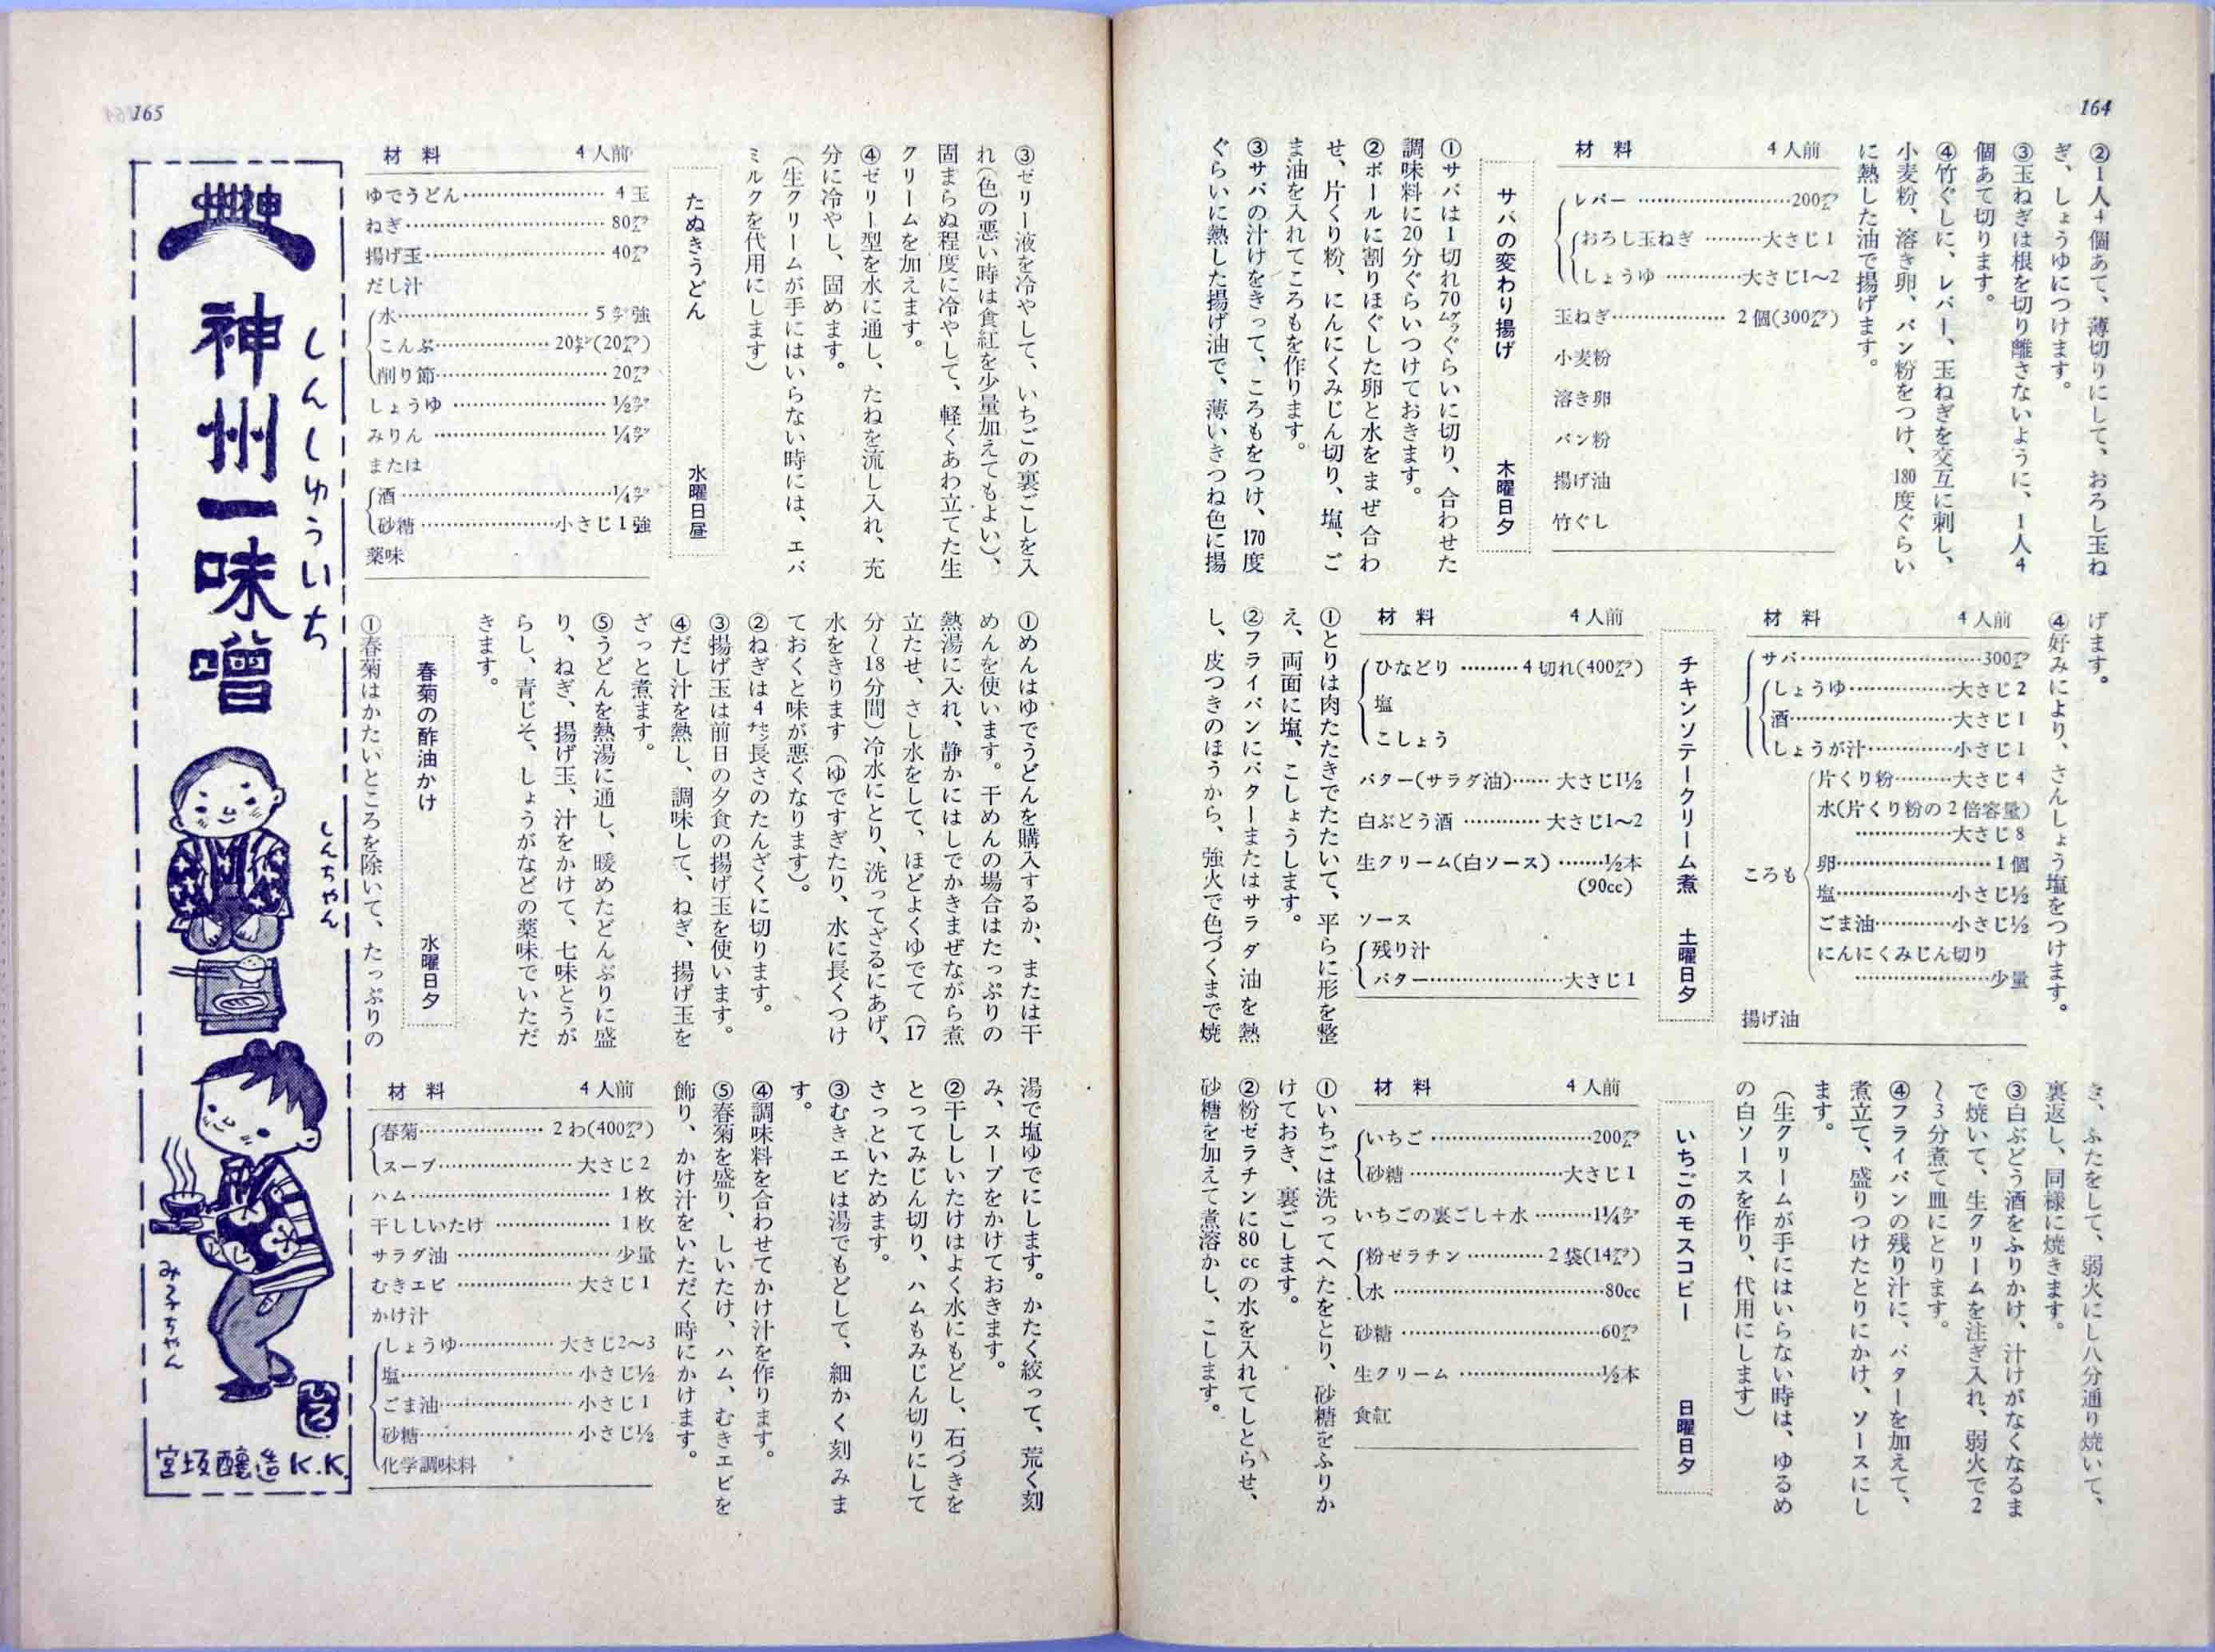 164
②1人4個あて、薄切りにして、おろし玉ね
ぎ、しょうゆにつけます。
③玉ねぎは根を切り離さないように、1人4
個あて切ります。
④竹ぐしに、レバー、玉ねぎを交互に刺し、
小麦粉、溶き卵、パン粉をつけ、180度ぐらい
に熱した油で揚げます。
材料 4人前
レバー …… 200㌘
おろし玉ねぎ …… 大さじ1
しょうゆ …… 大さじ1〜2
玉ねぎ …… 2個(300㌘)
小麦粉
溶き卵
パン粉
揚げ油
竹ぐし
サバの変わり揚げ 木曜日夕
①サバは1切れ70㌘ぐらいに切り、合わせた
調味料に20分ぐらいつけておきます。
②ボールに割りほぐした卵と水をまぜ合わ
せ、片くり粉、にんにくみじん切り、塩、ご
ま油を入れてころもを作ります。
③サバの汁けをきって、ころもをつけ、170度
ぐらいに熱した揚げ油で、薄いきつね色に揚
げます。
④好みにより、さんしょう塩をつけます。
材料 4人前
サバ …… 300㌘
しょうゆ …… 大さじ2
酒 …… 大さじ1
しょうが汁 …… 小さじ1
ころも
片くり粉 …… 大さじ4
水(片くり粉の2倍容量)
…… 大さじ8
卵 …… 1個
塩 …… 小さじ½
ごま油 …… 小さじ½
にんにくみじん切り
…… 少量
揚げ油
チキンソテークリーム煮 土曜日夕
材料 4人前
ひなどり …… 4切れ(400㌘)
塩
こしょう
バター(サラダ油) …… 大さじ1½
白ぶどう酒 …… 大さじ1〜2
生クリーム(白ソース) …… ½本
(90cc)
ソース
残り汁
バター …… 大さじ1
①とりは肉たたきでたたいて、平らに形を整
え、両面に塩、こしょうします。
②フライパンにバターまたはサラダ油を熱
し、皮つきのほうから、強火で色づくまで焼
き、ふたをして、弱火にし八分通り焼いて、
裏返し、同様に焼きます。
③白ぶどう酒をふりかけ、汁けがなくなるま
で焼いて、生クリームを注ぎ入れ、弱火で2
〜3分煮て皿にとります。
④フライパンの残り汁に、バターを加えて、
煮立て、盛りつけたとりにかけ、ソースにし
ます。
(生クリームが手にはいらない時は、ゆるめ
の白ソースを作り、代用にします)
いちごのモスコビー 日曜日夕
材料 4人前
いちご …… 200㌘
砂糖 …… 大さじ1
いちごの裏ごし+水 …… 1¼㌍
粉ゼラチン …… 2袋(14㌘)
水 …… 80cc
砂糖 …… 60㌘
生クリーム …… ½本
食紅
①いちごは洗ってへたをとり、砂糖をふりか
けておき、裏ごします。
②粉ゼラチンに80ccの水を入れてしとらせ、
砂糖を加えて煮溶かし、こします。
165
③ゼリー液を冷やして、いちごの裏ごしを入
れ(色の悪い時は食紅を少量加えてもよい)、
固まらぬ程度に冷やして、軽くあわ立てた生
クリームを加えます。
④ゼリー型を水に通し、たねを流し入れ、充
分に冷やし、固めます。
(生クリームが手にはいらない時には、エバ
ミルクを代用にします)
たぬきうどん 水曜日昼
材料 4人前
ゆでうどん …… 4玉
ねぎ …… 80㌘
揚げ玉 …… 40㌘
だし汁
水 …… 5㌍強
こんぶ …… 20㌢(20㌘)
削り節 …… 20㌘
しょうゆ …… ½㌍
みりん …… ¼㌍
または
酒 …… ¼㌍
砂糖 …… 小さじ1強
薬味
①めんはゆでうどんを購入するか、または干
めんを使います。干めんの場合はたっぷりの
熱湯に入れ、静かにはしでかきまぜながら煮
立たせ、さし水をして、ほどよくゆでて(17
分〜18分間)冷水にとり、洗ってざるにあげ、
水をきります(ゆですぎたり、水に長くつけ
ておくと味が悪くなります)。
②ねぎは4㌢長さのたんざくに切ります。
③揚げ玉は前日の夕食の揚げ玉を使います。
④だし汁を熱し、調味して、ねぎ、揚げ玉を
ざっと煮ます。
⑤うどんを熱湯に通し、暖めたどんぶりに盛
り、ねぎ、揚げ玉、汁をかけて、七味とうが
らし、青じそ、しょうがなどの薬味でいただ
きます。
春菊の酢油かけ 水曜日夕
①春菊はかたいところを除いて、たっぷりの
湯で塩ゆでにします。かたく絞って、荒く刻
み、スープをかけておきます。
②干ししいたけはよく水にもどし、石づきを
とってみじん切り、ハムもみじん切りにして
さっといためます。
③むきエビは湯でもどして、細かく刻みま
す。
④調味料を合わせてかけ汁を作ります。
⑤春菊を盛り、しいたけ、ハム、むきエビを
飾り、かけ汁をいただく時にかけます。
材料 4人前
春菊 …… 2わ(400㌘)
スープ …… 大さじ2
ハム …… 1枚
干ししいたけ …… 1枚
サラダ油 …… 少量
むきエビ …… 大さじ1
かけ汁
しょうゆ …… 大さじ2〜3
塩 …… 小さじ½
ごま油 …… 小さじ1
砂糖 …… 小さじ½
化学調味料
しんしゅういち
神州一味噌
しんちゃん
み子ちゃん
宮坂醸造K.K.